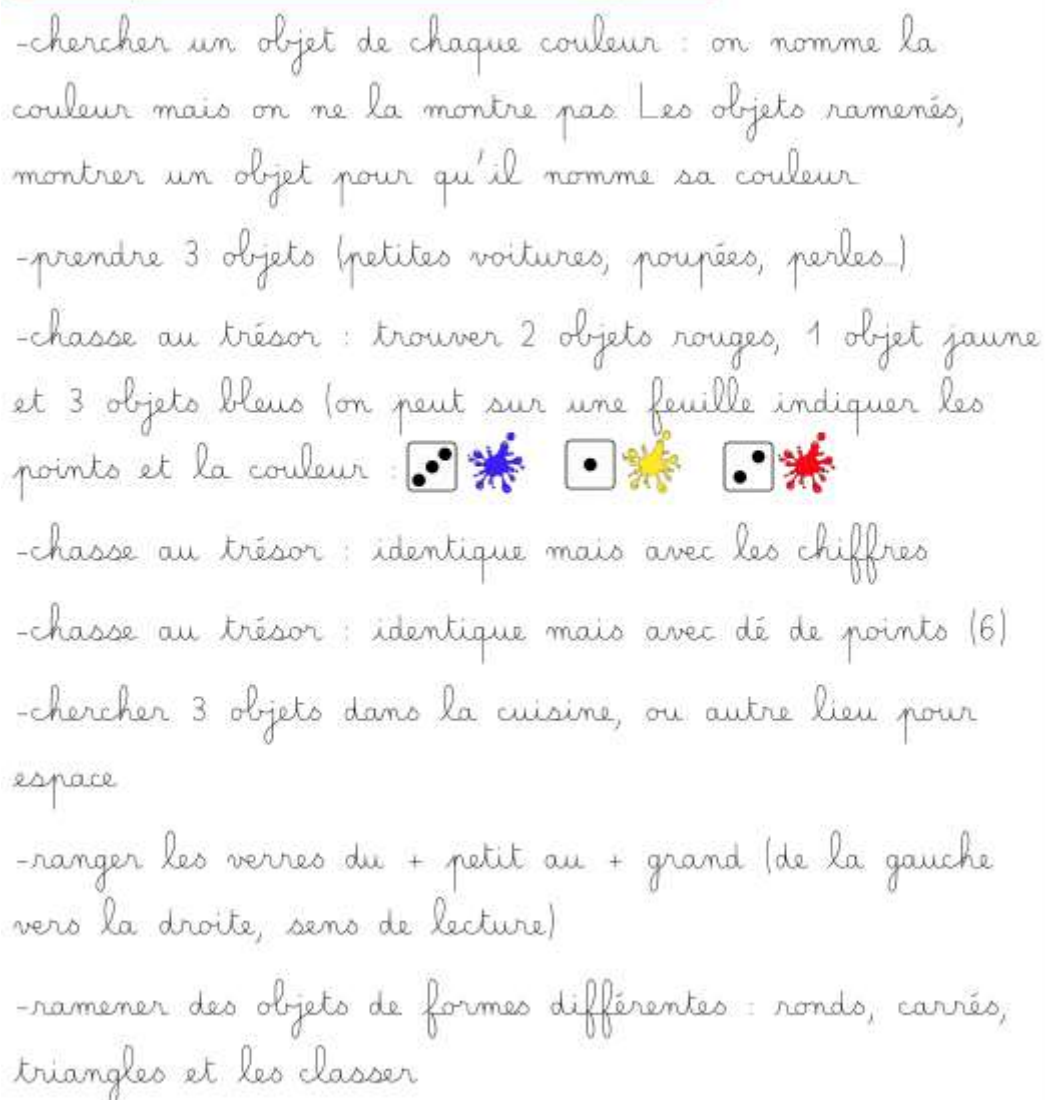 -chercher un objet de chaque couleur : on nomme la
couleur mais on ne la montre pas. Les objets ramenés,
montrer un objet pour qu'il nomme sa couleur.
-prendre 3 objets (petites voitures, poupées, perles...)
-chasse au trésor : trouver 2 objets rouges, 1 objet jaune
et 3 objets bleus (on peut sur une feuille indiquer les
points et la couleur :
-chasse au trésor : identique mais avec les chiffres
-chasse au trésor : identique mais avec dé de points (6)
-chercher 3 objets dans la cuisine, ou autre lieu pour
espace.
-ranger les verres du + petit au + grand (de la gauche
vers la droite, sens de lecture)
-ramener des objets de formes différentes : ronds, carrés,
triangles et les classer